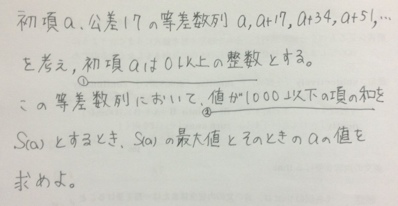 初項a、公差17の等差数列 a, a+17, a+34, a+51, …
を考え, 初項aは0以上の整数とする。
①
この等差数列において、値が1000以下の項の和を
②
S(a)とするとき、S(a)の最大値とそのときのaの値を
求めよ。